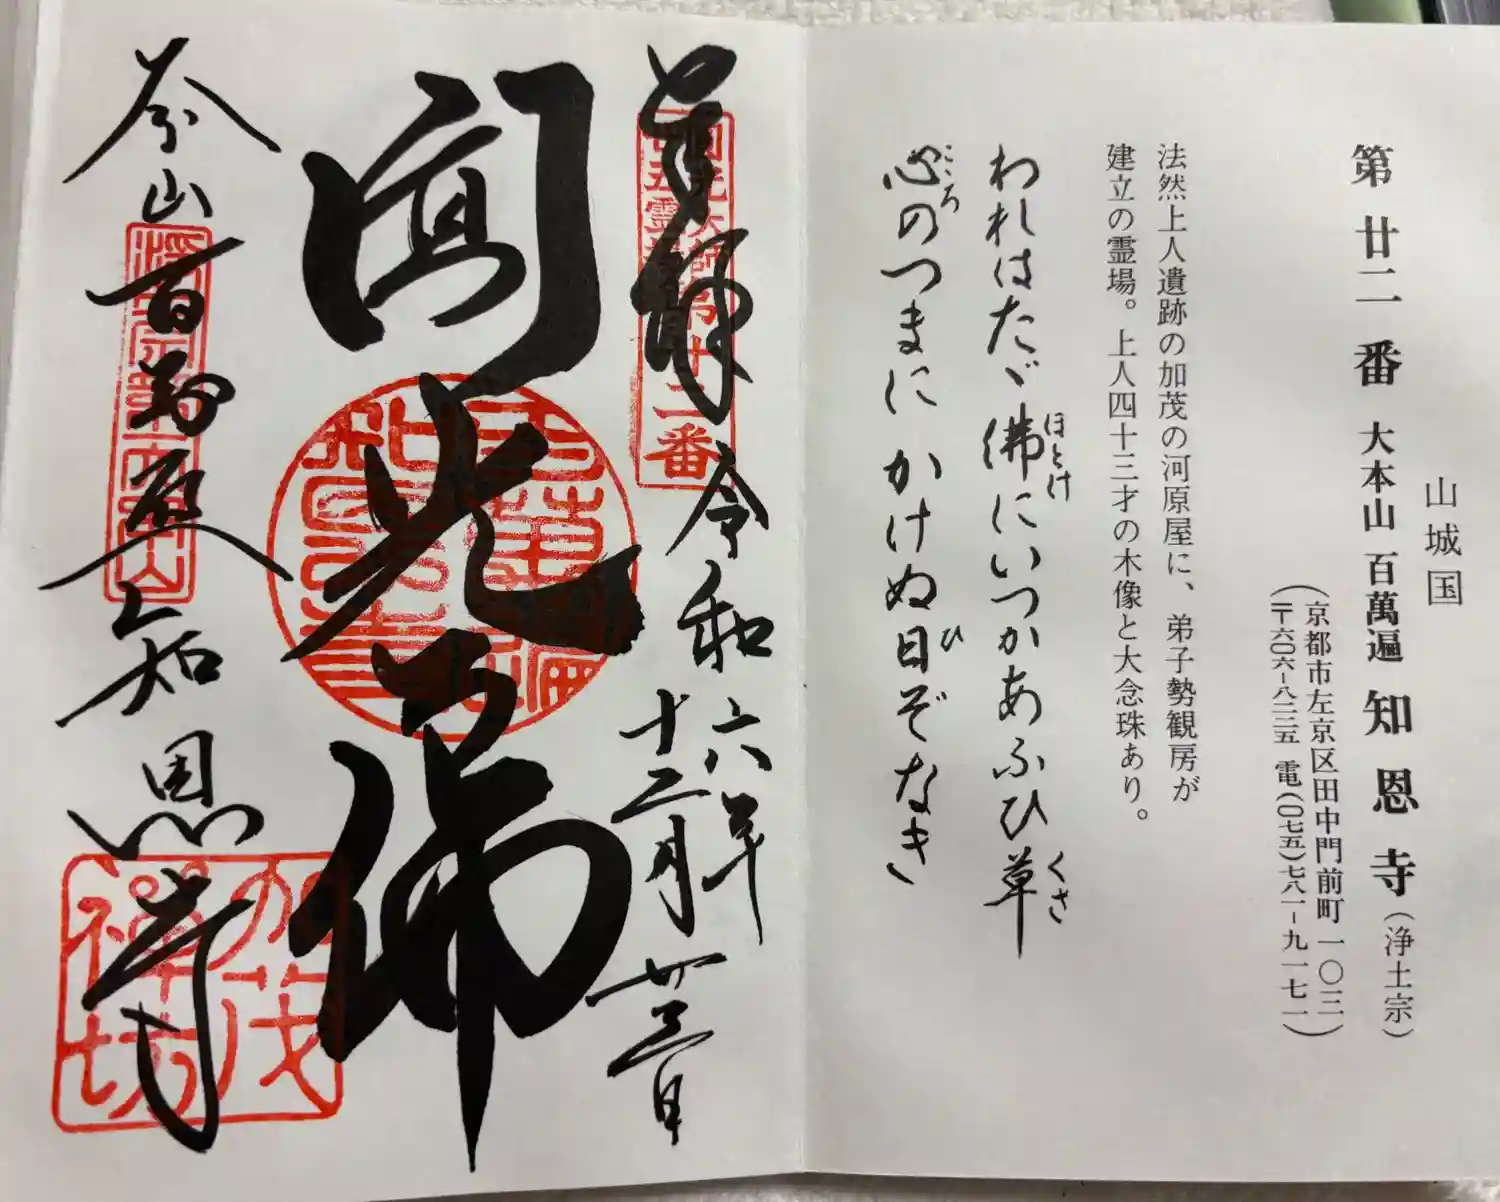 山城国
第廿二番 大本山 百萬遍 知恩寺(浄土宗)
(京都市左京区田中門前町一〇三)
(〒六〇六-八二二五 電(〇七五)七八一-九一七一)
法然上人遺跡の加茂の河原屋に、弟子勢観房が
建立の霊場。上人四十三才の木像と大念珠あり。
われはたゞ佛にいつかあふひ草
ほとけ
くさ
心のつまに かけぬ日ぞなき
こころ
ひ
奉拝
令和六年
十二月廿三日
圓光大師
廿五霊場第廿二番
光佛
山百万遍知恩寺
加茂
禅坊